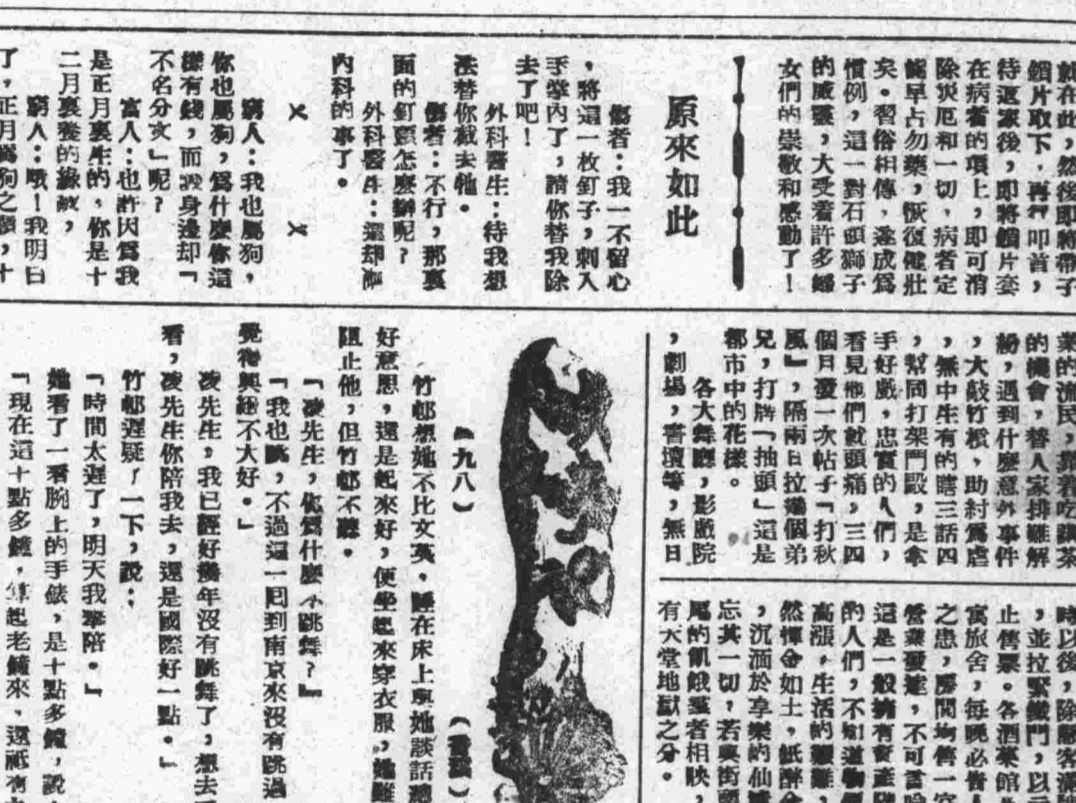 就在此,然後即將帶子
鎖片取下,再行叩首,
待返家後,即將鎖片套
在病者的項上,即可消
除災厄和一切,病者定
能早占勿藥,恢復健壯
矣。習俗相傳,遂成爲
慣例,這一對石頭獅子
的威靈,大受着許多婦
女們的崇敬和感動了!
原來如此
傷者:我一不留心
,將這一枚釘子,刺入
手掌內了,請你替我除
去了吧!
外科醫生:待我想
法替你截去牠。
傷者:不行,那裏
面的釘頭怎麼辦呢?
外科醫生:這却
內科的事了。
× ×
窮人:我也屬狗,
你也屬狗,爲什麼你這
樣有錢,而我身邊却「
不名分文」呢?
富人:也許因爲我
是正月裏生的,你是十
二月裏養的緣故,
窮人:哦!我明白
了,正月屬狗之類,十
業的流民,靠着吃講茶
的機會,替人家排難解
紛,遇到什麼意外事件
,大敲竹槓,助紂爲虐
,無中生有的瞎三話四
,幫同打架鬥毆,是拿
手好戲,忠實的人們,
看見他們就頭痛,三四
個月發一次帖子「打秋
風」,隔兩日拉攏個弟
兄,打牌「抽頭」這是
都市中的花樣。
各大舞廳,影戲院
,劇場,書壇等,無日
時以後,除顧客滿
,並拉緊鐵門,以
止售票。各酒菜館
寓旅舍,每晚必告
之患,房間均售一空
營業發達,不可言喻
這是一般擁有資產階
的人們,不知道物價
高漲,生活的艱難,
然揮金如土,紙醉金
,沉湎於享樂的仙
忘其一切,若與街頭
尾的飢餓羣者相映,
有天堂地獄之分。
(九八)
竹邨想她不比文英,睡在床上與她談話總
好意思,還是起來好,便坐起來穿衣服,她雖
阻止他,但竹邨不聽。
「凌先生,你爲什麼不跳舞?」
「我也跳,不過這一回到南京來沒有跳過
覺得興趣不大好。」
凌先生,我已經好幾年沒有跳舞了,想去
看,凌先生你陪我去,還是國際好一點。」
竹邨遲疑了一下,說:
「時間太遲了,明天我奉陪。」
她看了一看腕上的手錶,是十點多鐘,說
「現在這十點多鐘,算起老鐘來,還祇有